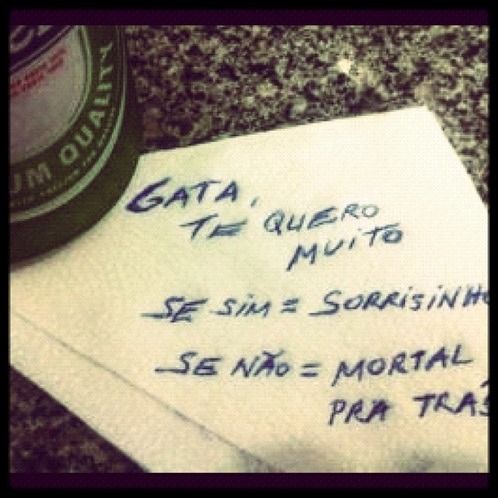 UM QUALITY
GATA,
TE QUERO
MUITO
SE SIM = SORRISINHO
SE NÃO = MORTAL
PRA TRÁS